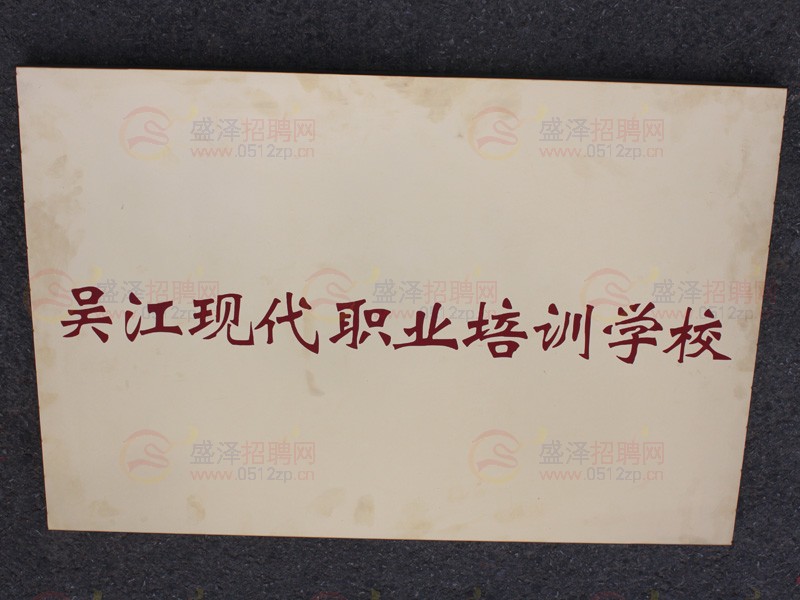 盛泽招聘网 盛泽招聘网
www.0512zp.cn www.0512zp.cn
盛泽招聘网 盛泽招聘网
吴江现代职业培训学校
盛泽招聘网 盛泽招聘网
www.0512zp.cn www.0512zp.cn